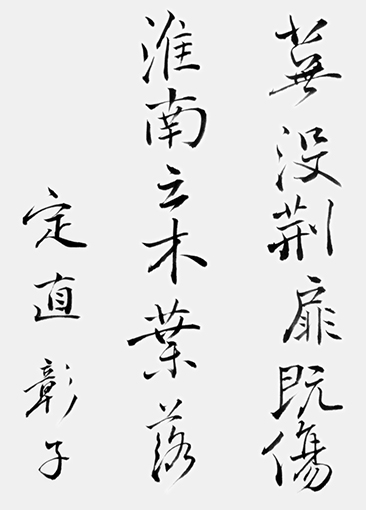 蕪没荊扉既傷
淮南云木葉落
定直彰子